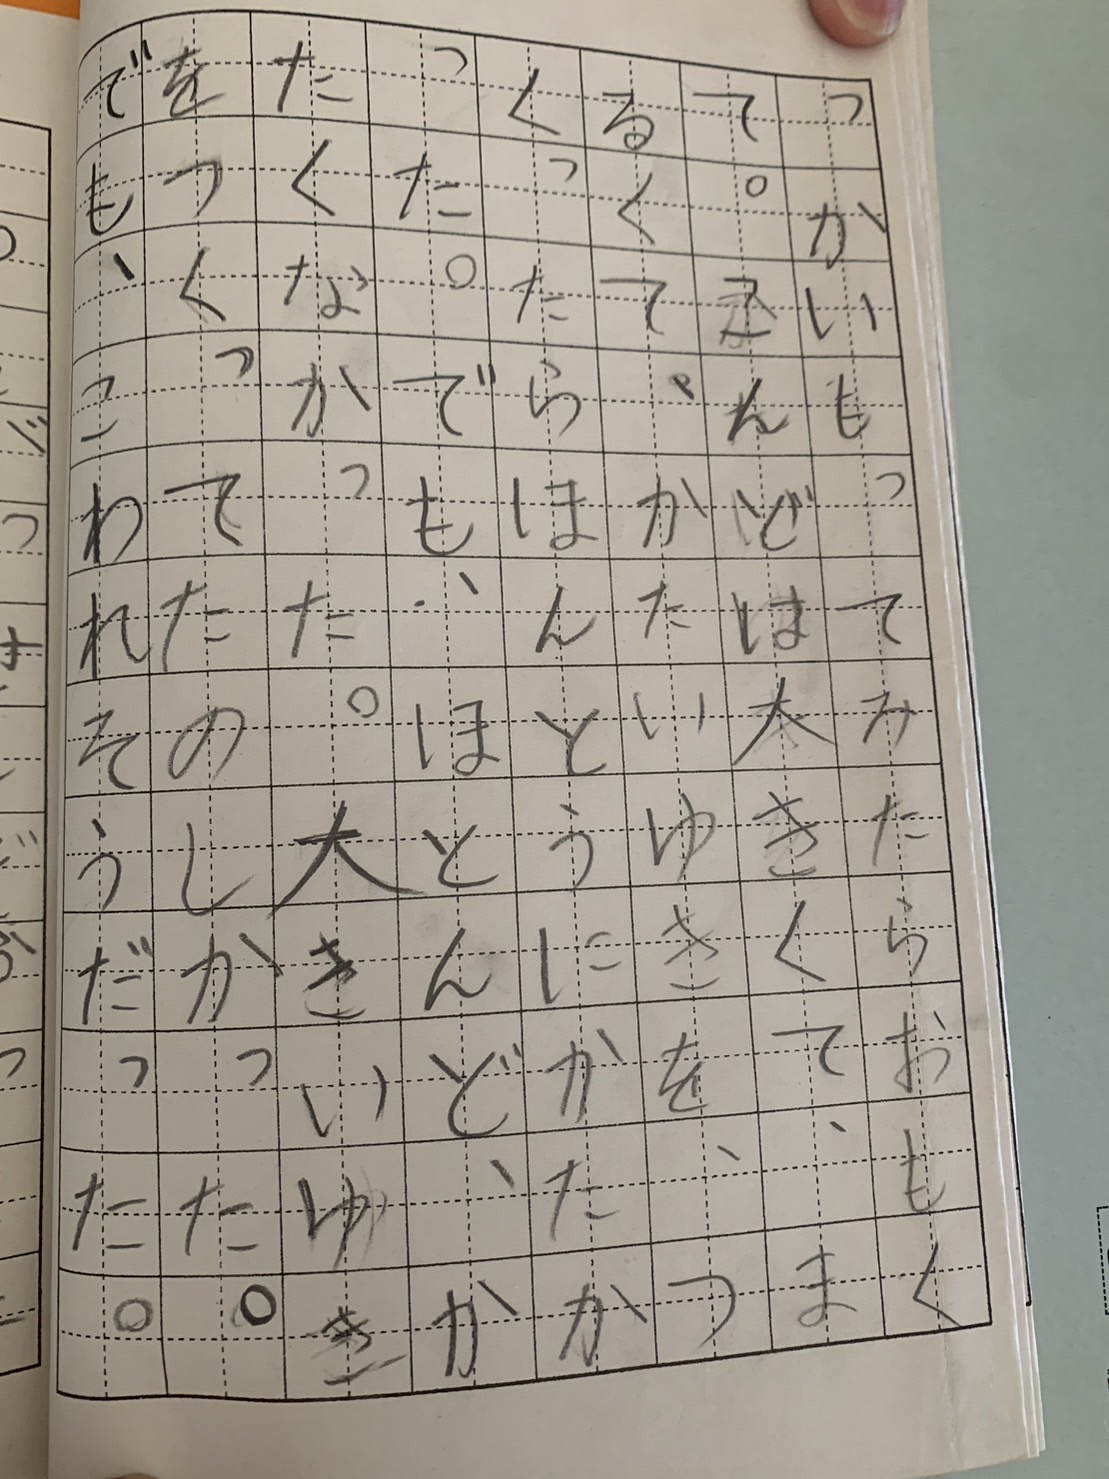 っかいもってみたらおもく
て。こんどは大きくて、ま
るくて、かたいゆきを、つ
くったらほんとうにかたか
った。でも、ほとんど、か
たくなかった。大きいゆき
をつくってたのしかった。
でも、こわれそうだった。